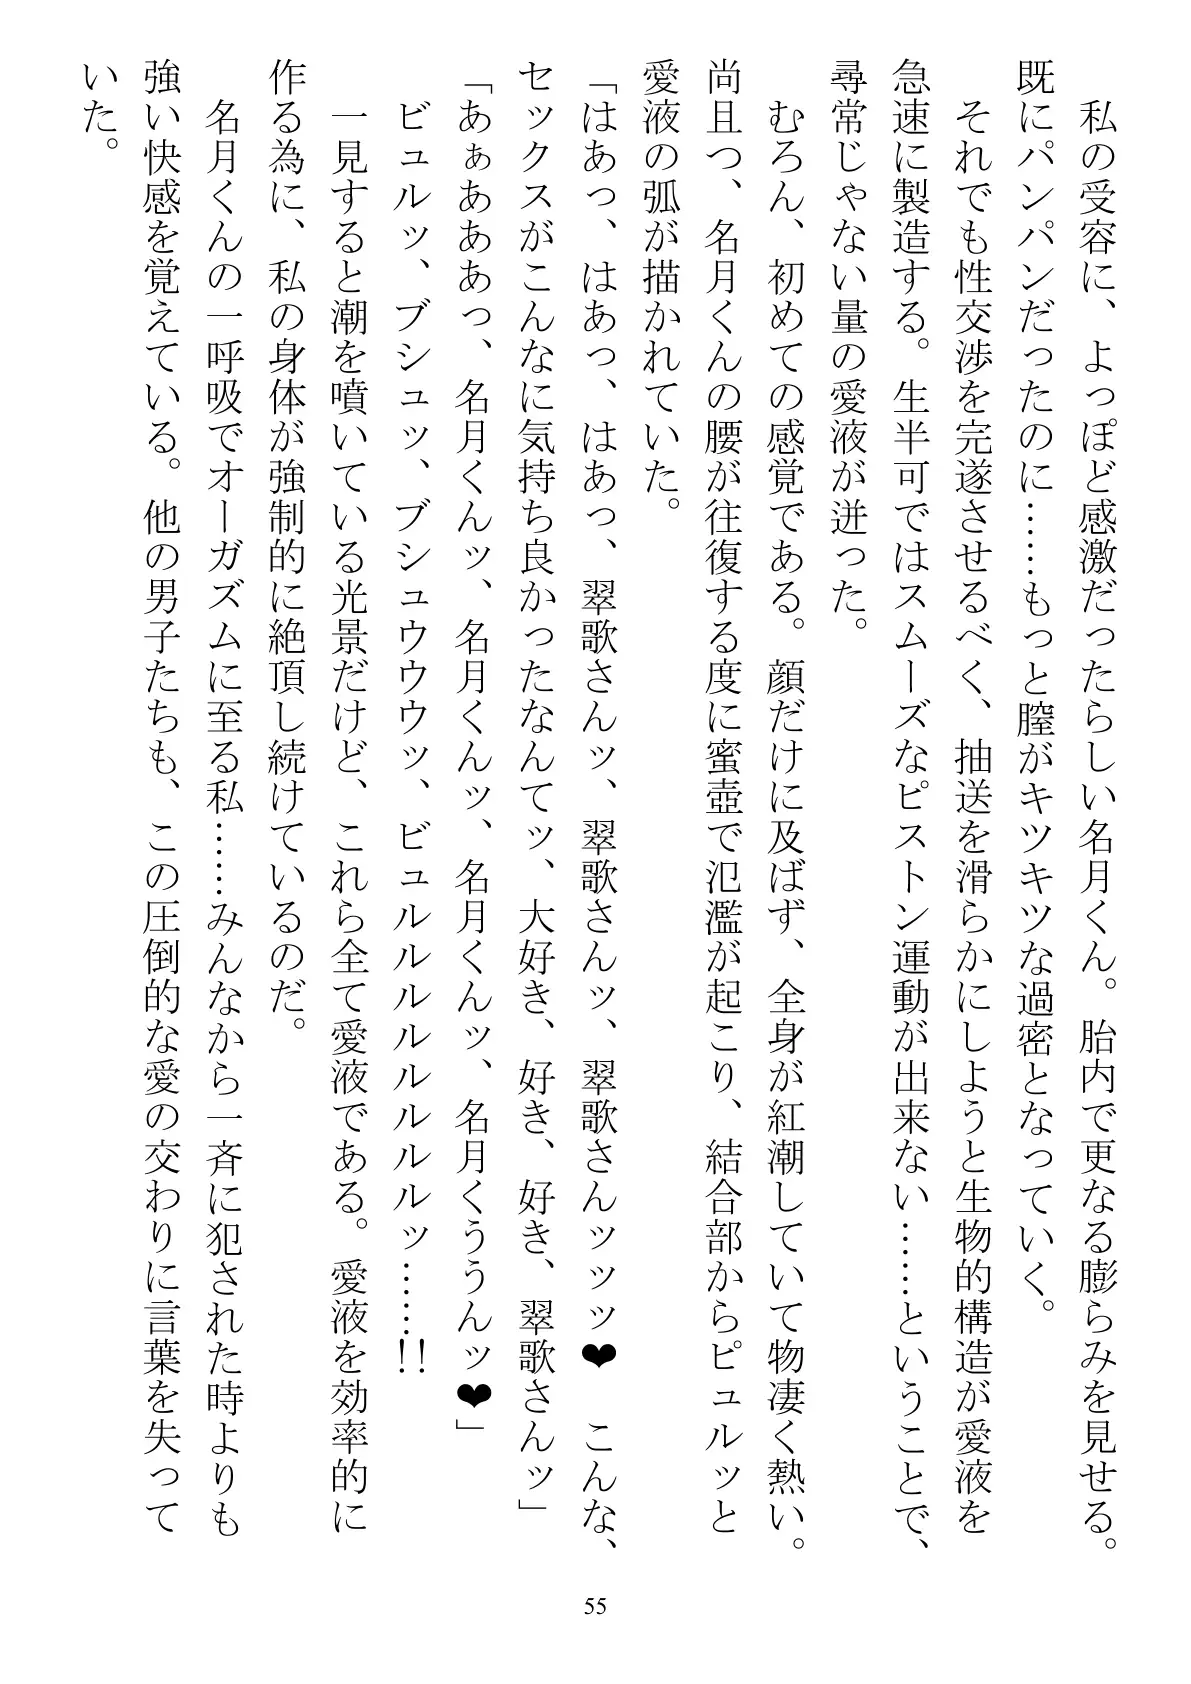 私の受容に、よっぽど感激だったらしい名月くん。胎内で更なる膨らみを見せる。
既にパンパンだったのに……もっと膣がキツキツな過密となっていく。
　それでも性交渉を完遂させるべく、抽送を滑らかにしようと生物的構造が愛液を
急速に製造する。生半可ではスムーズなピストン運動が出来ない……ということで、
尋常じゃない量の愛液が迸った。
　むろん、初めての感覚である。顔だけに及ばず、全身が紅潮していて物凄く熱い。
尚且つ、名月くんの腰が往復する度に蜜壺で氾濫が起こり、結合部からピュルッと
愛液の弧が描かれていた。
「はあっ、はあっ、はあっ、翠歌さんッ、翠歌さんッ、翠歌さんッッッ❤　こんな、
セックスがこんなに気持ち良かったなんてッ、大好き、好き、好き、翠歌さんッ」
「あぁあああっ、名月くんッ、名月くんッ、名月くんッ、名月くううんッ❤」
　ビュルッ、ブシュッ、ブシュウウウッ、ビュルルルルルルルルッ……!!
　一見すると潮を噴いている光景だけど、これら全て愛液である。愛液を効率的に
作る為に、私の身体が強制的に絶頂し続けているのだ。
　名月くんの一呼吸でオーガズムに至る私……みんなから一斉に犯された時よりも
強い快感を覚えている。他の男子たちも、この圧倒的な愛の交わりに言葉を失って
いた。
55